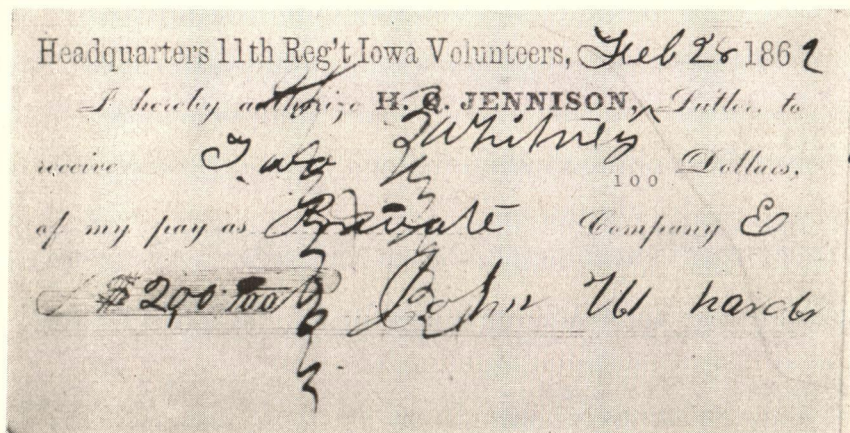 Headquarters 11th Reg't Iowa Volunteers, Feb 28 1862
I hereby authorize H. Q. JENNISON, Sutler, to
Whitney
receive Two 100 Dollars,
of my pay as Private Company E
$ 2 00/100 John